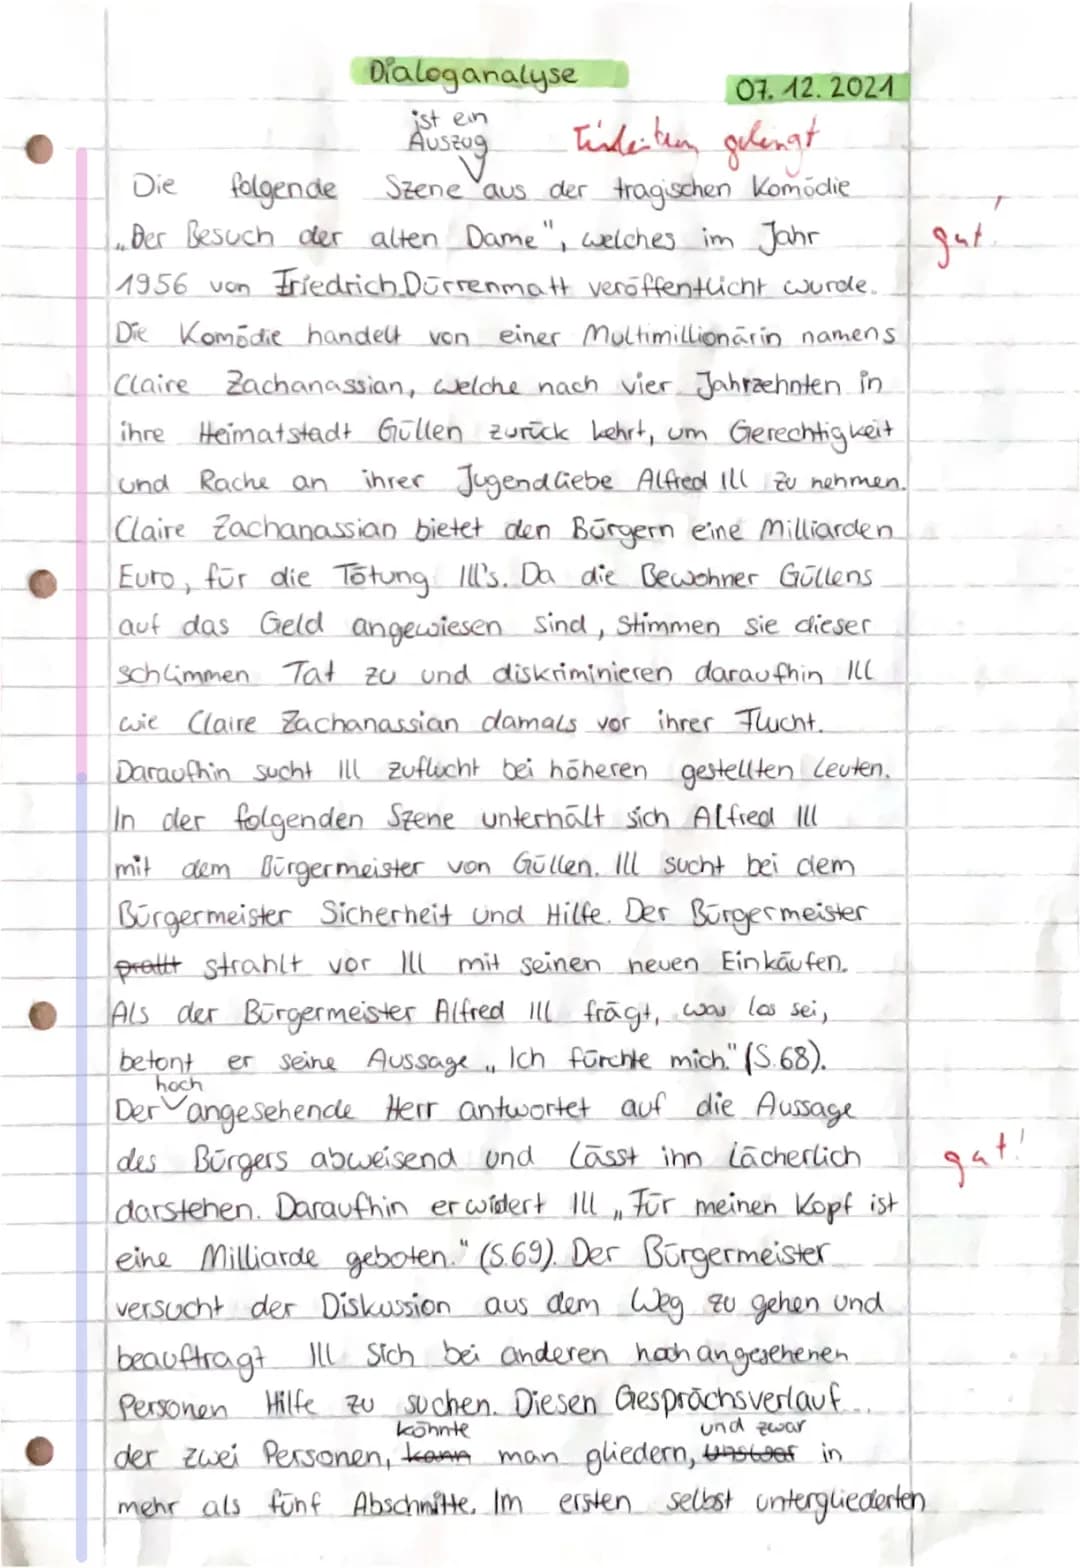 Dialoganalyse
07. 12. 2021
ist ein
Auszug
Einleitung gelingt
Die folgende Szene aus der tragischen Komödie
„Der Besuch der alten Dame", welches im Jahr
gut!
1956 von Friedrich Dürrenmatt veröffentlicht wurde.
Die Komödie handelt von einer Multimillionärin namens
Claire Zachanassian, welche nach vier Jahrzehnten in
ihre Heimatstadt Güllen zurück kehrt, um Gerechtigkeit
und Rache an ihrer Jugendliebe Alfred Ill zu nehmen.
Claire Zachanassian bietet den Bürgern eine Milliarden
Euro, für die Tötung Ill's. Da die Bewohner Güllens
auf das Geld angewiesen sind, stimmen sie dieser
schlimmen Tat zu und diskriminieren daraufhin Ill
wie Claire Zachanassian damals vor ihrer Flucht.
Daraufhin sucht Ill zuflucht bei höheren gestellten Leuten.
In der folgenden Szene unterhält sich Alfred Ill
mit dem Bürgermeister von Güllen. Ill sucht bei dem
Bürgermeister Sicherheit und Hilfe. Der Bürgermeister
prallt strahlt vor Ill mit seinen neuen Einkäufen.
Als der Bürgermeister Alfred Ill frägt, was los sei,
betont er seine Aussage „Ich fürchte mich." (S.68).
hoch
Der angesehende Herr antwortet auf die Aussage
des Bürgers abweisend und lässt ihn lächerlich
gut!
darstehen. Daraufhin erwidert Ill „Für meinen Kopf ist
eine Milliarde geboten." (S.69). Der Bürgermeister
versucht der Diskussion aus dem Weg zu gehen und
beauftragt Ill sich bei anderen hoch angesehenen
Personen Hilfe zu suchen. Diesen Gesprächsverlauf
könnte und zwar
der zwei Personen, kann man gliedern, in
mehr als fünf Abschnitte. Im ersten selbst untergliederten